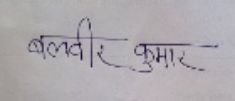 बलवीर कुमार